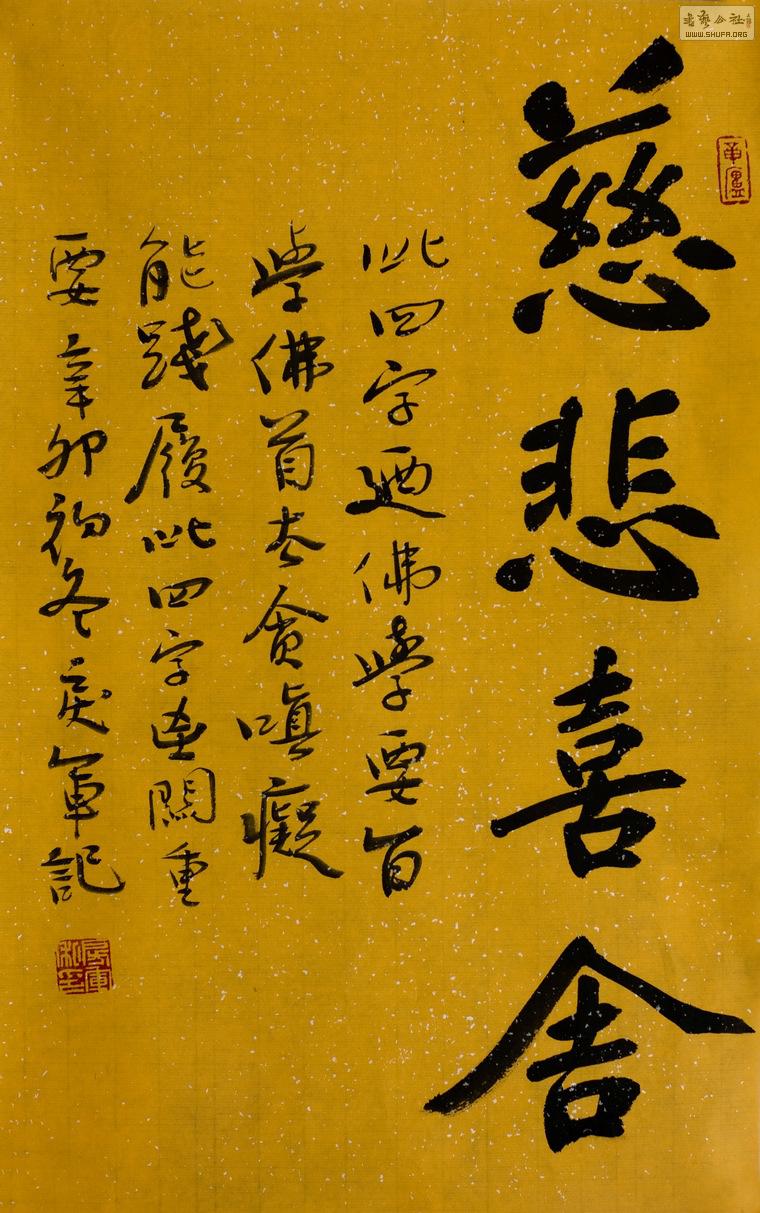 慈悲喜舍
此四字迺佛學要旨
學佛首去貪嗔癡
能踐履此四字至關重
要辛卯初冬 軍記
WWW.SHUFA.ORG